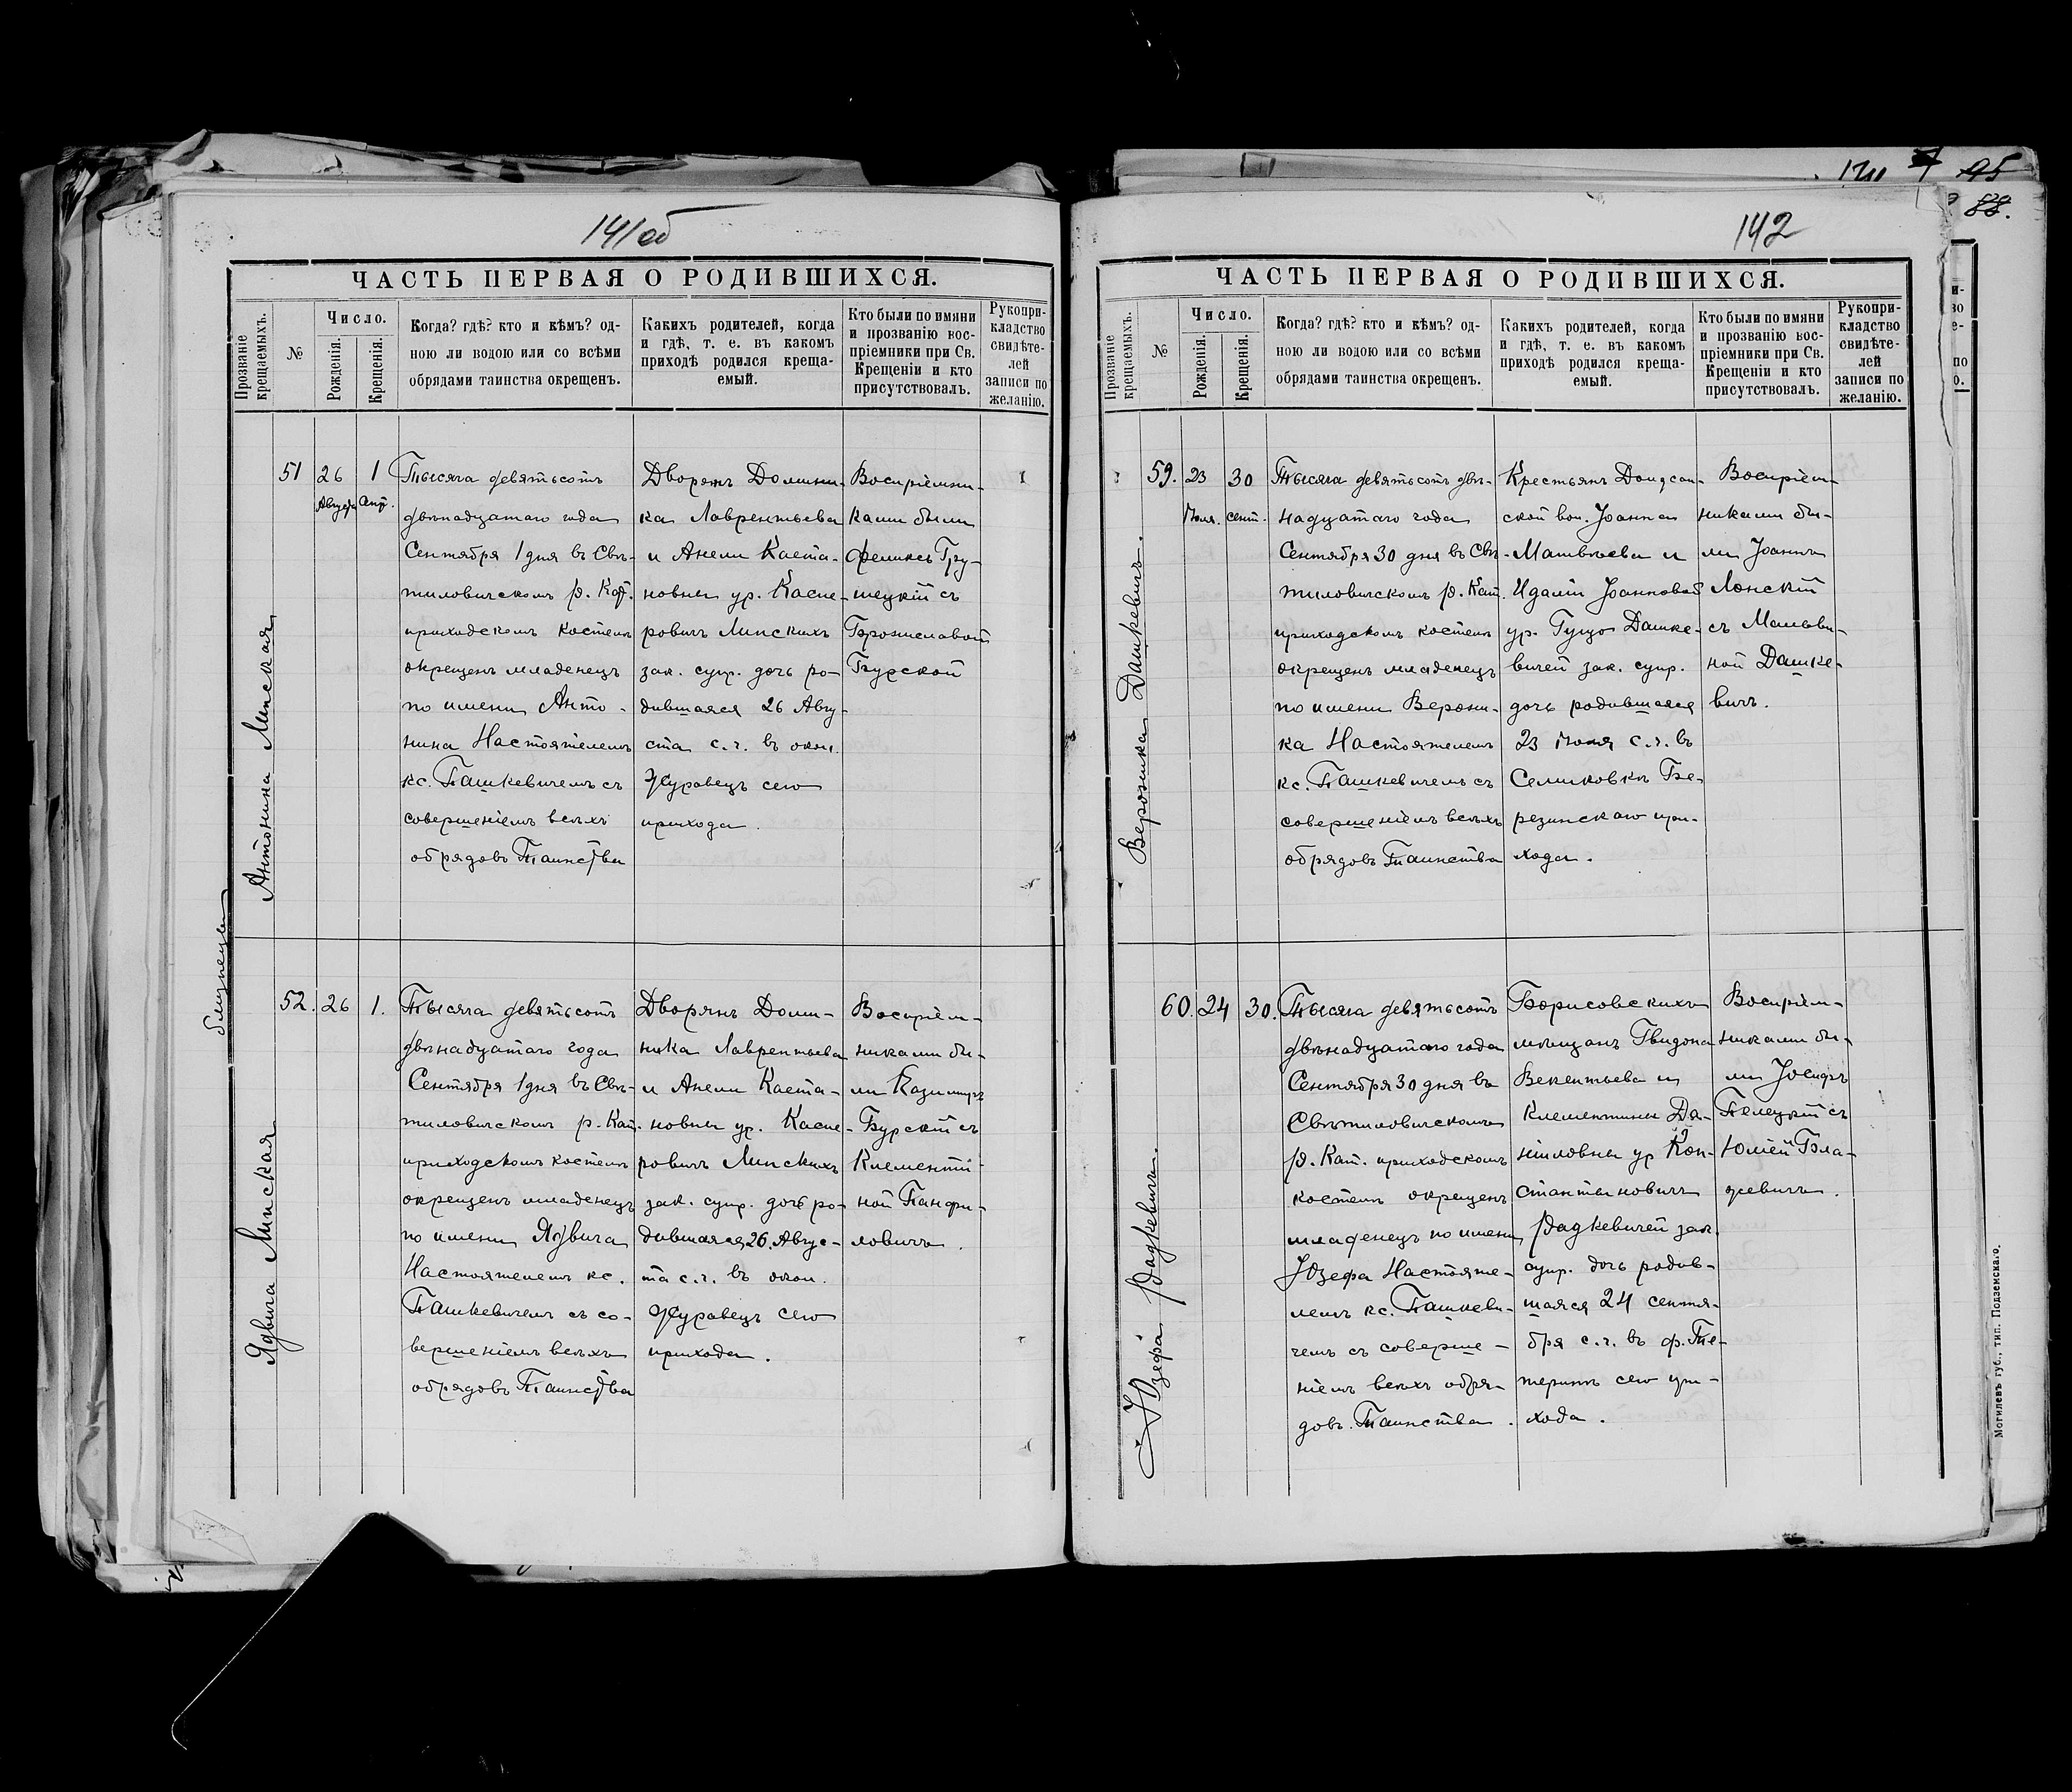 141об
ЧАСТЬ ПЕРВАЯ О РОДИВШИХСЯ.
Прозваніе крещаемыхъ.
№
Число.
Рожденія.
Крещенія.
Когда? гдѣ? кто и кѣмъ? од-
ною ли водою или со всѣми
обрядами таинства окрещенъ.
Какихъ родителей, когда
и гдѣ, т. е. въ какомъ
приходѣ родился креща-
емый.
Кто были по имяни
и прозванію вос-
пріемники при Св.
Крещеніи и кто
присутствовалъ.
Рукопри-
кладство
свидѣте-
лей
записи по
желанію.
близнецы
Антонина Линская
51
26
Августа
1
Тысяча девятьсотъ
двѣнадцатаго года
Сентября 1 дня въ Свя-
тиловичскомъ р. Кат.
приходскомъ костелѣ
окрещенъ младенецъ
по имени Анто-
нина Настоятелемъ
кс. Пашкевичемъ съ
совершеніемъ всѣхъ
обрядовъ Таинства
Дворянъ Домини-
ка Лаврентьева
и Анели Каета-
новны ур. Каспе-
ровичъ Линскихъ
зак. супр. дочь ро-
дившаяся 26 Авгу-
ста с.г. въ окол.
Журавецъ сего
прихода.
Воспріемни-
ками были
Феликсъ Гру-
шецкій съ
Брониславой
Бурской
Ядвига Линская
52.
26
1.
Тысяча девятьсотъ
двѣнадцатаго года
Сентября 1 дня въ Свя-
тиловичскомъ р. Кат.
приходскомъ костелѣ
окрещенъ младенецъ
по имени Ядвига
Настоятелемъ кс.
Пашкевичемъ съ со-
вершеніемъ всѣхъ
обрядовъ Таинства
Дворянъ Доми-
ника Лаврентьева
и Анели Каета-
новны ур. Каспе-
ровичъ Линскихъ
зак. супр. дочь ро-
дившаяся 26. Авгус-
та с.г. въ окол.
Журавецъ сего
прихода.
Воспріем-
никами бы-
ли Казимиръ
Бурскій съ
Клементи-
ной Панфи-
ловичъ.
95
88.
142
ЧАСТЬ ПЕРВАЯ О РОДИВШИХСЯ.
Прозваніе крещаемыхъ.
№
Число.
Рожденія.
Крещенія.
Когда? гдѣ? кто и кѣмъ? од-
ною ли водою или со всѣми
обрядами таинства окрещенъ.
Какихъ родителей, когда
и гдѣ, т. е. въ какомъ
приходѣ родился креща-
емый.
Кто были по имяни
и прозванію вос-
пріемники при Св.
Крещеніи и кто
присутствовалъ.
Рукопри-
кладство
свидѣте-
лей
записи по
желанію.
Вероника Дашкевичъ.
59.
23
Іюля.
30
сент.
Тысяча девятьсотъ двѣ-
надцатаго года
Сентября 30 дня въ Свя-
тиловичскомъ р. Кат.
приходскомъ костелѣ
окрещенъ младенецъ
по имени Верони-
ка Настоятелемъ
кс. Пашкевичемъ съ
совершеніемъ всѣхъ
обрядовъ Таинства
Крестьянъ
ской вол. Іоанна
Матвѣева и
Идаліи Іоанновой
ур. Гуща Дашке-
вичей зак. супр.
дочь родившаяся
23 Іюля с.г. въ
Селиковкѣ Бе-
резинскаго при-
хода.
Воспріем-
никами бы-
ли Іоаннъ
Лонскій
съ Мальви-
ной Дашке-
вичъ.
Юзефа Радкевичъ.
60.
24
30.
Тысяча девятьсотъ
двѣнадцатаго года
Сентября 30 дня въ
Святиловичскомъ
р. Кат. приходскомъ
костелѣ окрещенъ
младенецъ по имени
Юзефа Настояте-
лемъ кс. Пашкеви-
чемъ съ соверше-
ніемъ всѣхъ обря-
довъ. Таинства.
Борисовскихъ
мѣщанъ Гвидона
Викентьева и
Клементины Да-
ніиловны ур Кон-
стантиновичъ
Радкевичей зак.
супр. дочь родив-
шаяся 24 сентя-
бря с.г. въ ф. Те-
теринѣ сего при-
хода.
Воспріем-
никами бы-
ли Іосифъ
Пелецкій съ
Юліей Бла-
жевичъ.
Могилевъ губ., тип. Подземскаго.